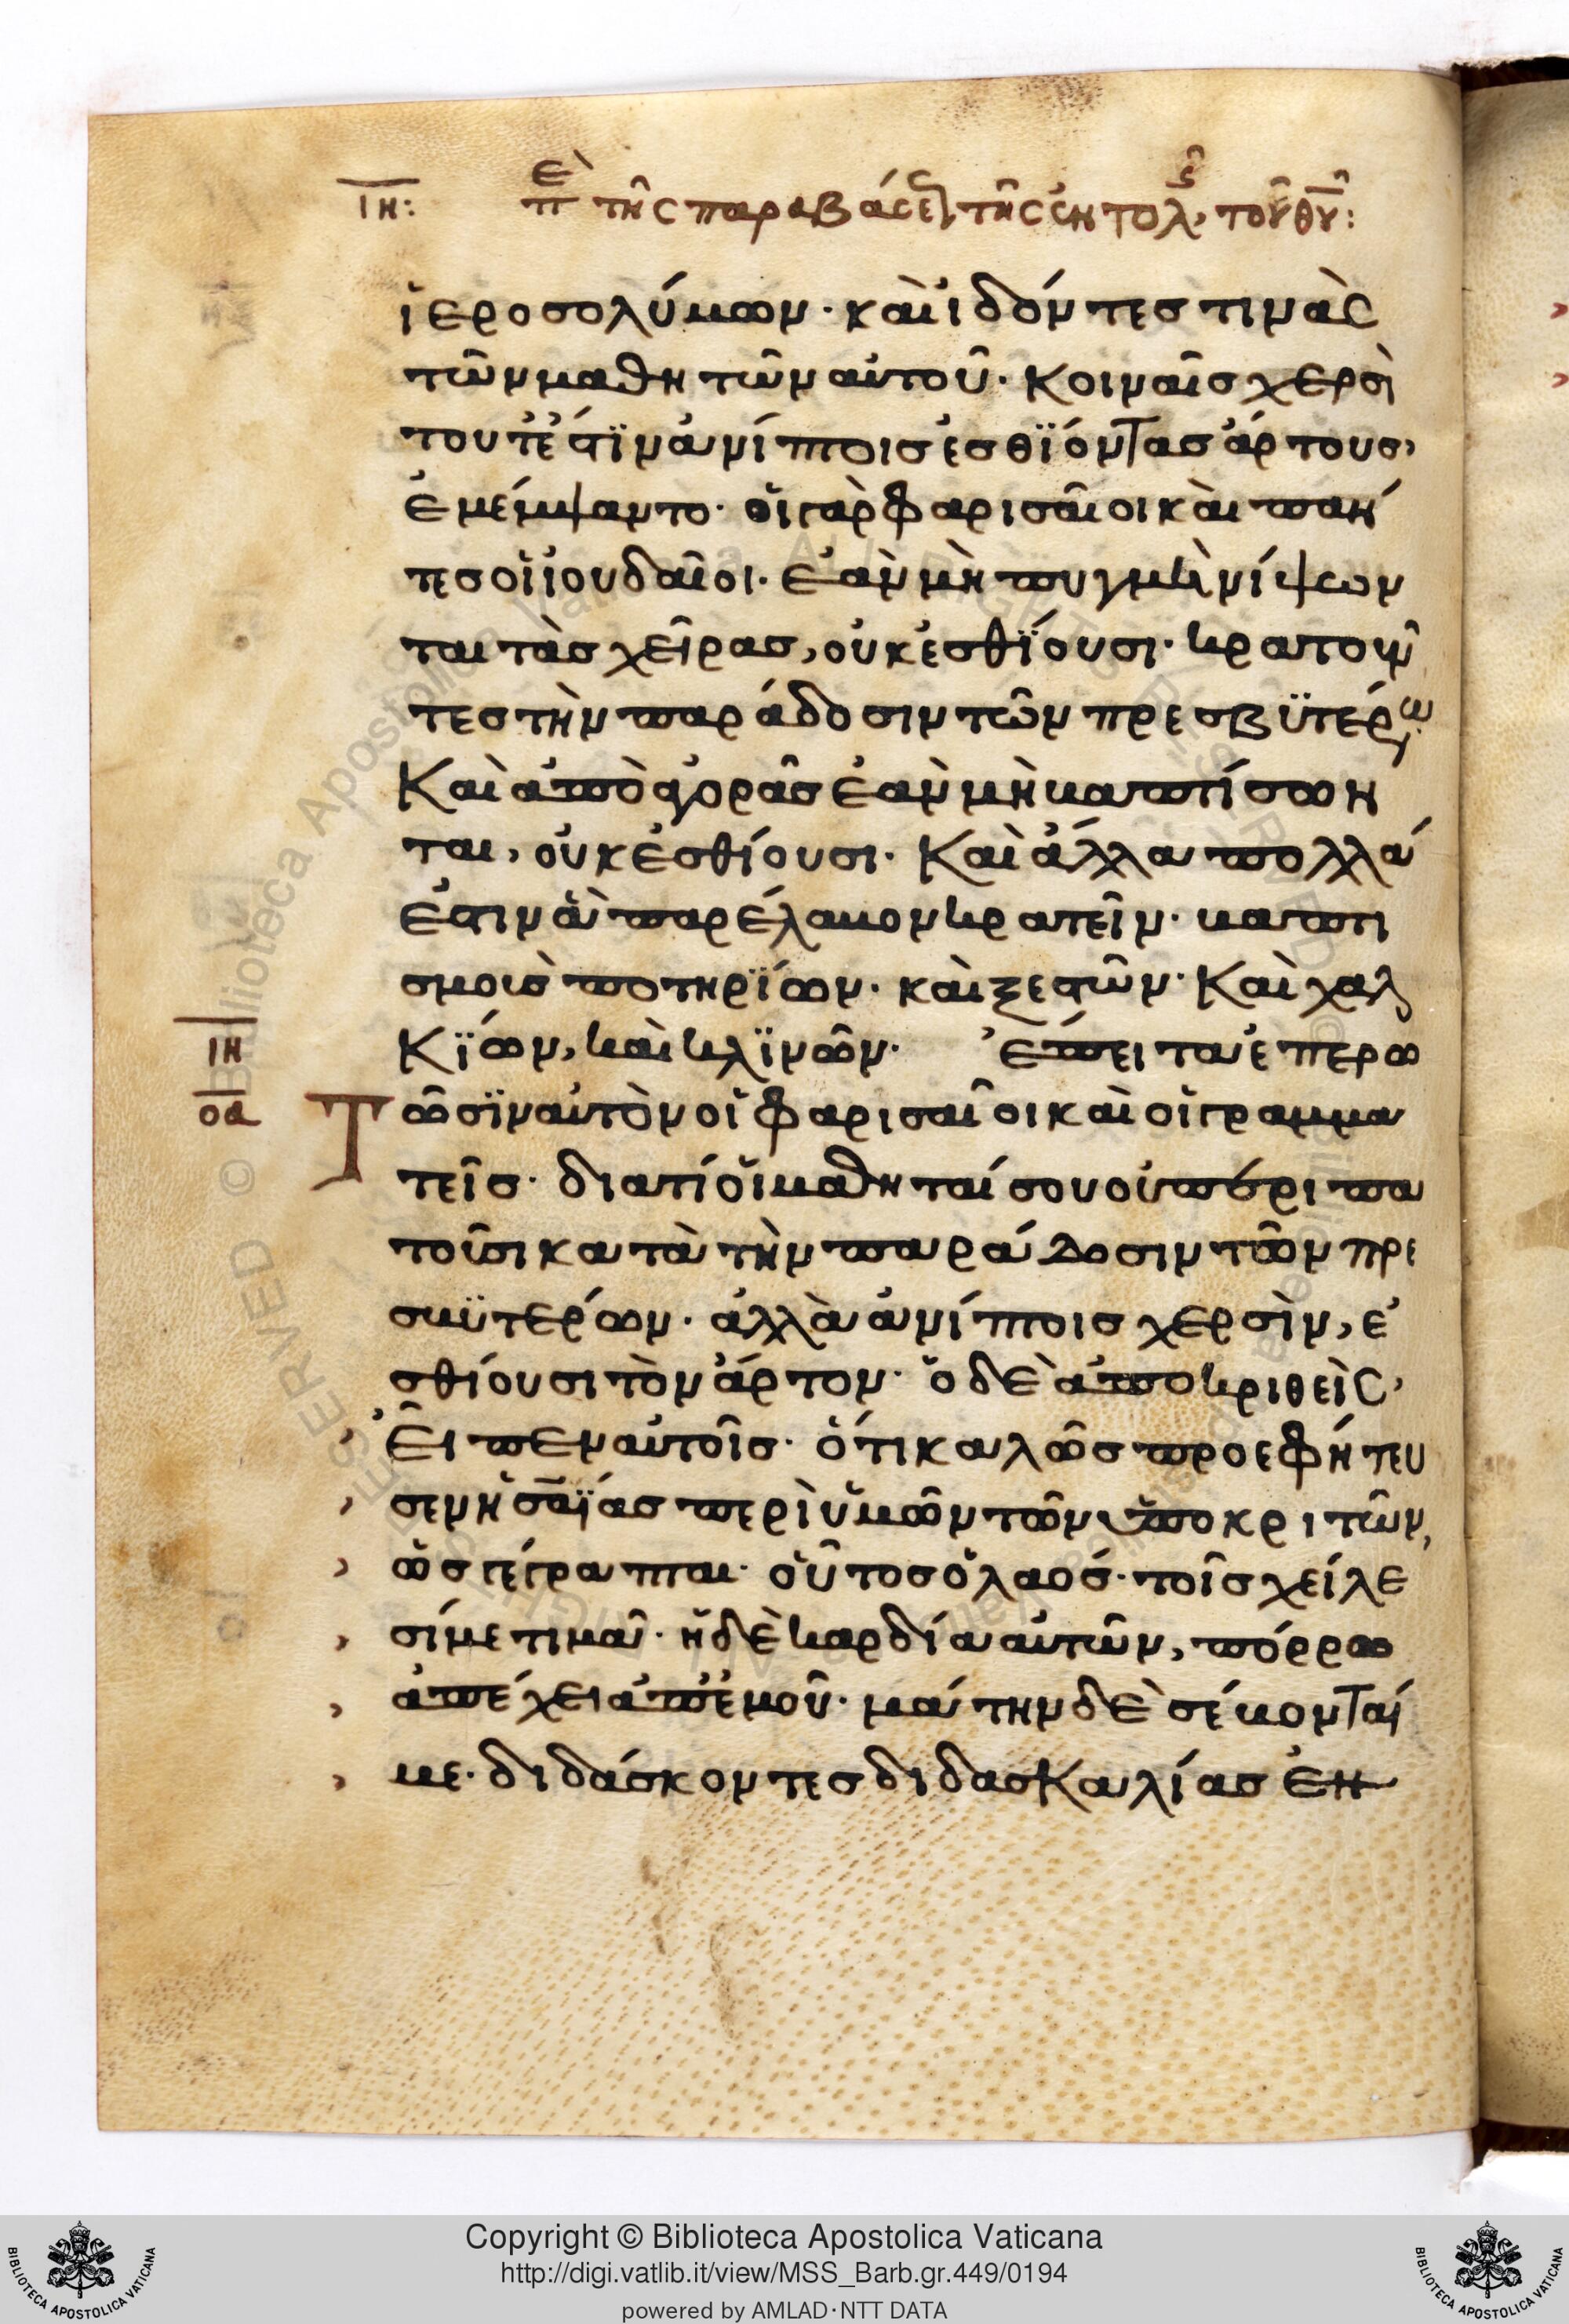 ΙΗ: Περὶ τῆς παραβάσεως τῆς ἐντολῆς τοῦ θῡ:
ἱεροσολύμων· καὶ ἰδόντες τινὰς
τῶν μαθητῶν αὐτοῦ· κοιναῖς χερσὶ
τουτέστϊν ἀνίπτοις ἐσθϊόντας ἄρτους,
ἐμέμψαντο· οἱ γὰρ φαρισαῖοι καὶ πάν
τες οἱ ἰουδαῖοι· ἐὰν μὴ πυγμῆ νίψων
ται τὰς χεῖρας, οὐκ ἐσθΐουσι· κρατοῦν
τες τὴν παράδοσιν τῶν πρεσβϋτέρων
Καὶ ἀπὸ ἀγορᾶς ἐὰν μὴ βαπτίσων
ται, οὐκ ἐσθίουσι· Καὶ ἄλλα πολλά
ἐστιν ἃ παρέλαβον κρατεῖν· βαπτι
σμοὺς ποτηρΐων· καὶ ξεστῶν· Καὶ χαλ
Κΐων, καὶ κλϊνῶν· Ἔπειτα ἐπερω
ΙΗ
οα Τῶσϊν αὐτὸν οἱ φαρισαῖοι καὶ οἱ γραμμα
τεῖς· διατί οἱ μαθηταί σου οὐ περιπα
τοῦσι κατὰ τὴν παράδοσιν τῶν πρε
σβϋτέρων· ἀλλὰ ἀνίπτοις χερσὶν, ἐ
σθίουσι τὸν ἄρτον· ὁ δὲ ἀποκριθεὶς,
Εἶπεν αὐτοῖς· ὅτι καλῶς προεφήτευ
σεν ἡσαΐας περὶ ὑμῶν τῶν ὑποκριτῶν,
ὡς γέγραπται· οὗτος ὁ λαός· τοῖς χείλε
σί με τιμᾶ· ἡ δὲ καρδία αὐτῶν, πόρρω
ἀπέχει ἀπ' ἐμοῦ· μάτην δὲ σέβονταί
με· διδάσκοντες διδασΚαλίας ἐν
Copyright © Biblioteca Apostolica Vaticana
http://digi.vatlib.it/view/MSS_Barb.gr.449/0194
powered by AMLAD·NTT DATA
BIBLIOTECA APOSTOLICA VATICANA
BIBLIOTECA APOSTOLICA VATICANA